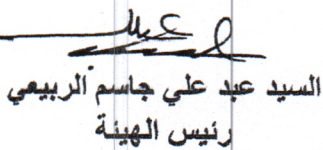 السيد عبد علي جاسم الربيعي
رئيس الهيئة